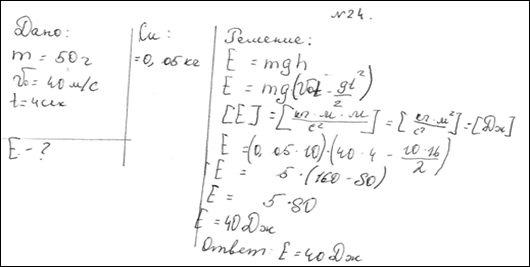 №24.
Дано:
m = 50 г
v₀ = 40 м/с
t = 4 сек
E - ?
Си:
= 0,05 кг
Решение:
E = mgh
E = mg(v₀t - gt²/2)
[E] = [кг·м·м/с²] = [кг·м²/с²] = [Дж]
E = (0,05·10)·(40·4 - 10·16/2)
E = 5·(160-80)
E = 5·80
E = 40 Дж
Ответ: E = 40 Дж